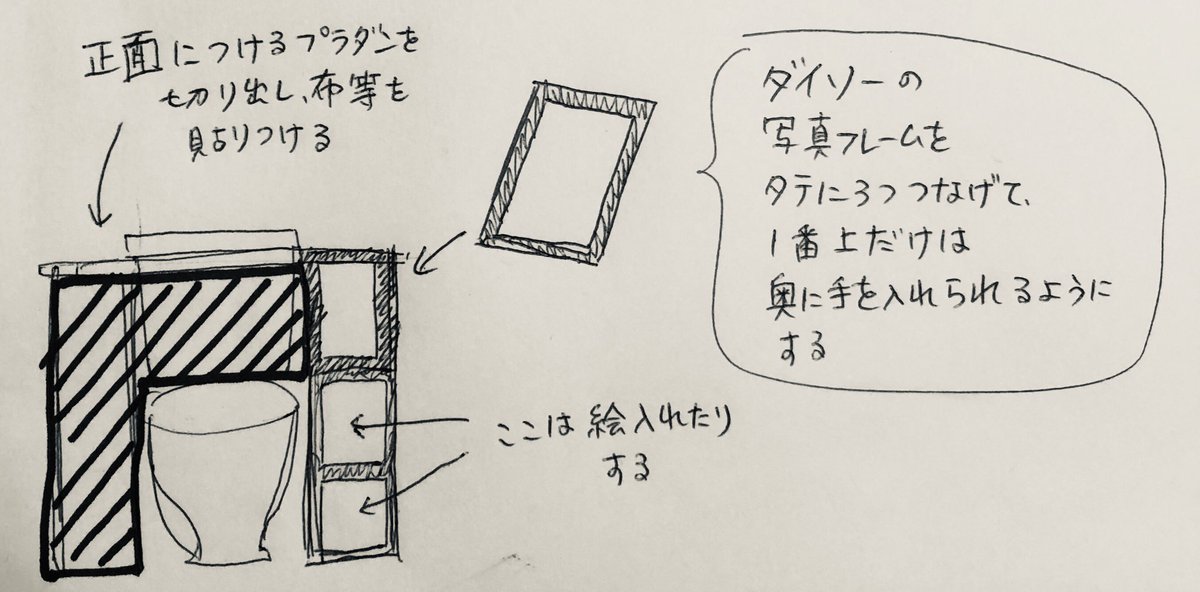 正面につけるプラダンを
切り出し、布等を
貼りつける
ダイソーの
写真フレームを
タテに3つつなげて、
1番上だけは
奥に手を入れられるように
する
ここは絵入れたり
する